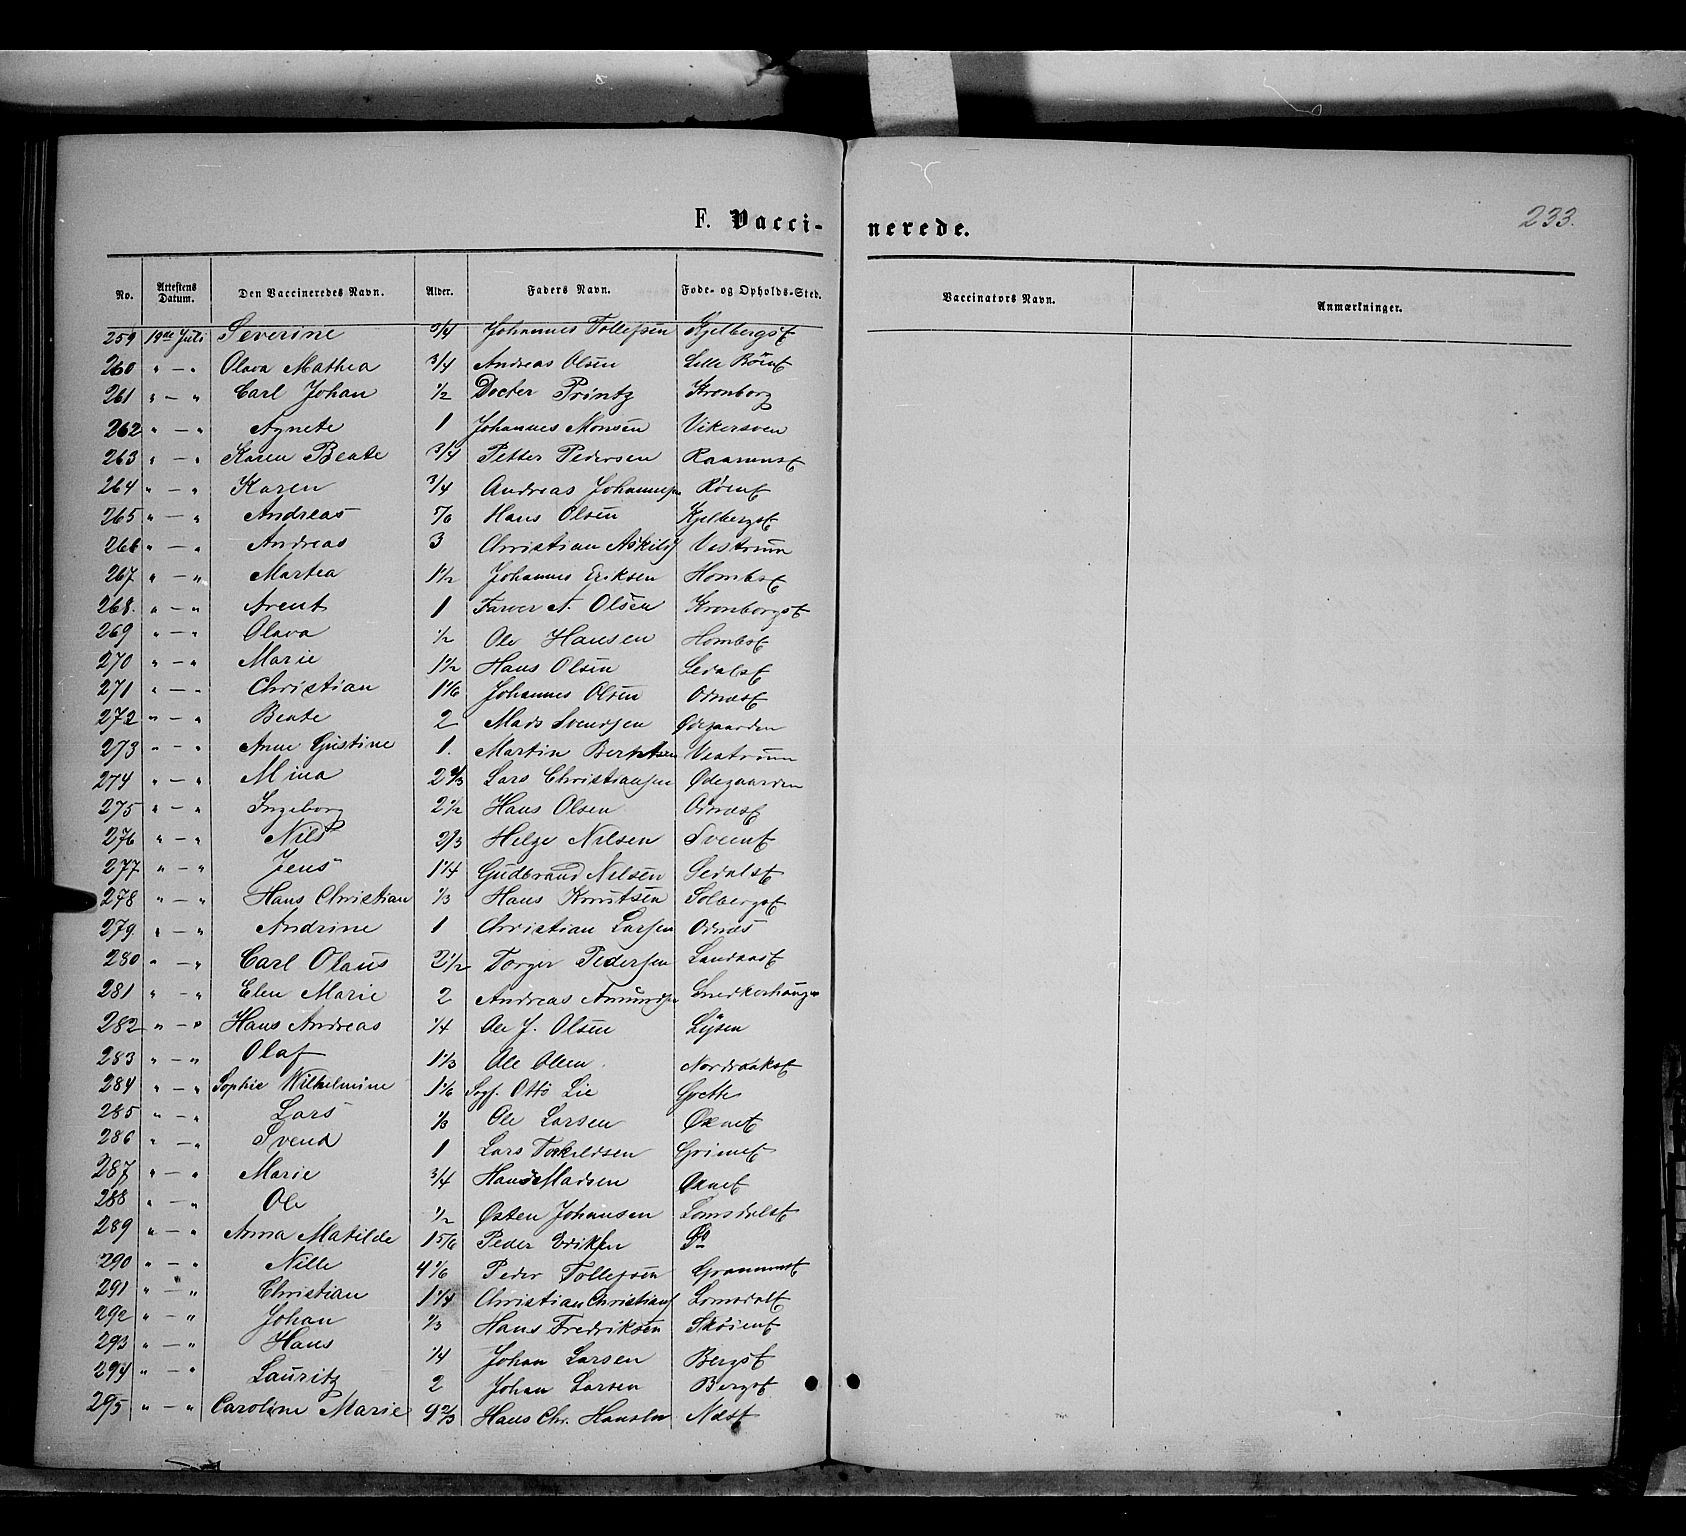 233.
F. Vacci-nerede.
No. Attestens Datum. Den Vaccineredes Navn. Alder. Faders Navn. Føde- og Opholds-Sted. Vaccinators Navn. Anmærkninger.
259 19de Juli Severine 3/4 Johannes Tollefsen Kjelbergst
260 " - " Olava Mathea 3/4 Andreas Olsen Lille Röent
261 " - " Carl Johan 1/2 Docter Printz Kronborg
262 " - " Agnete 1 Johannes Monsen Vikersven
263 " - " Karen Beate 3/4 Petter Pedersen Raammst
264 " - " Karen 3/4 Andreas Johannesen Røent
265 " - " Andreas Hans Olsen Kjelbergst
266 " - " Andreas 3 Christian Askils Vestrum
267 " - " Martea 1 1/2 Johannes Eriksen Hombst
268. " - " Arent 1 Farver A. Olsen Kronborgst
269 " - " Olava 1/2 Ole Hansen Hombst
270 " - " Marie 1 1/2 Hans Olsen Sedalst
271 " - " Christian 1 1/6 Johannes Olsen Odnæst
272 " - " Beate 2 Mads Svendsen Ødegaarden
273 " - " Anne Gustine 1. Martin Berntsen Vestrum
274 " - " Mina 2 2/3 Lars Christiansen Ødegaarden
275 " - " Ingeborg 2 1/2 Hans Olsen Odnæst
276 " - " Nils 2/3 Helge Nilsen Sveent
277 " - " Jens 1 1/4 Gudbrand Nilsen Sedalst
278 " - " Hans Christian 1/3 Hans Knutsen Solbergst
279 " - " Andrine 1 Christian Larsen Odnæs
280 " - " Carl Olaus 2 1/2 Torger Pedersen Landaast
281 " - " Elen Marie 2 Andreas Amundsen Snedkerhaugen
282 " - " Hans Andreas 1/4 Ole J. Olsen Lÿsen
283 " - " Olaf 1 1/3 Ole Olsen Nordraakst
284 " - " Sophie Wilhelmine 1 1/6 Sogf. Otto Lie
285 " - " Lars 1/3 Ole Larsen Øknet
286 " - " Svend 1 Lars Torkildsen Grimet
287 " - " Marie 3/4 Hans Madsen Øknet
288 " - " Ole 1/2 Østen Johansen Lomsdalst
289 " - " Anna Matilde 1 5/6 Peder Eriksen Do
290 " - " Nille 4 1/6 Peder Tollefsen
291 " - " Christian 1 1/4 Christian Christians Lomsdalst
292 " - " Johan 1/3 Hans Fredriksen Skøient
293 " - " Hans 1/4 Johan Larsen Bergst
294 " - " Lauritz 2 Johan Larsen Bergst
295 " - " Caroline Marie 9 2/3 Hans Chr. Hansen Næst